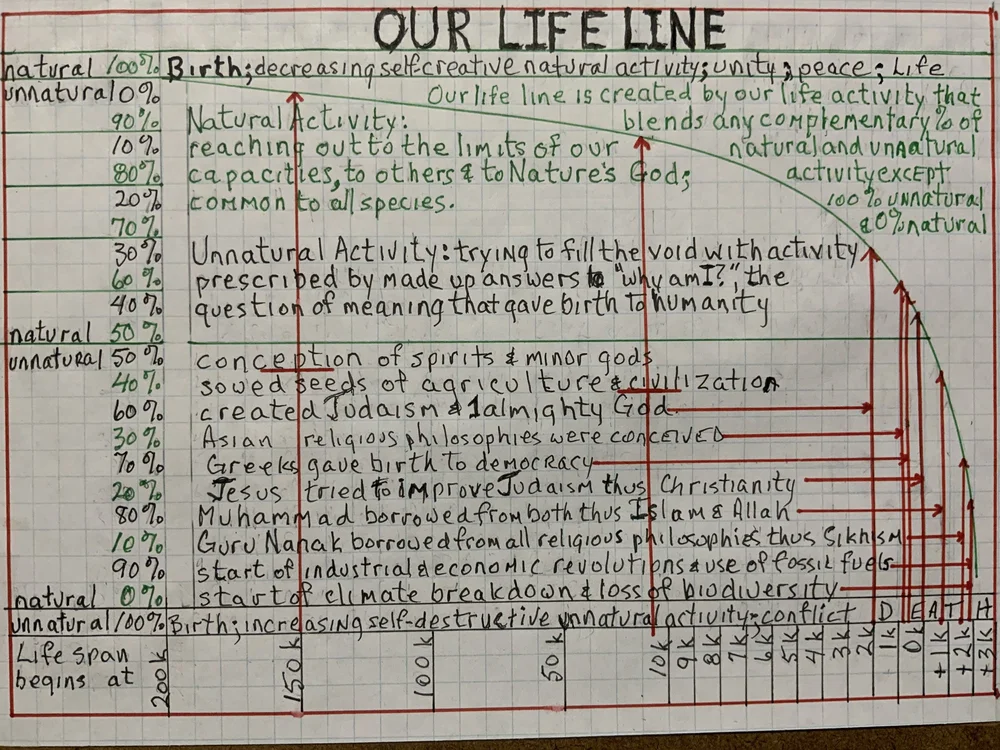 OUR LIFE LINE
natural 100% Birth; decreasing self-creative natural activity; unity; peace; Life
unnatural 0% Our life line is created by our life activity that
90% Natural Activity: blends any complementary % of
10% reaching out to the limits of our natural and unnatural
80% capacities, to others & to Nature's God; activity except
20% common to all species. 100% unnatural
70% & 0% natural
30% Unnatural Activity: trying to fill the void with activity
60% prescribed by made up answers to "why am I?", the
40% question of meaning that gave birth to humanity
natural 50%
unnatural 50% conception of spirits & minor gods
40% sowed seeds of agriculture & civilization
60% created Judaism & 1 almighty God
30% Asian religious philosophies were conceived
70% Greeks gave birth to democracy
20% Jesus tried to improve Judaism thus Christianity
80% Muhammad borrowed from both thus Islam & Allah
10% Guru Nanak borrowed from all religious philosophies thus Sikhism
90% start of industrial & economic revolutions & use of fossil fuels
natural 0% start of climate breakdown & loss of biodiversity
unnatural 100% Birth; increasing self-destructive unnatural activity; conflict DEATH
Life span
begins at 200k 150k 100k 50k 10k 9k 8k 7k 6k 5k 4k 3k 2k 1k 0k +1k +2k +3k